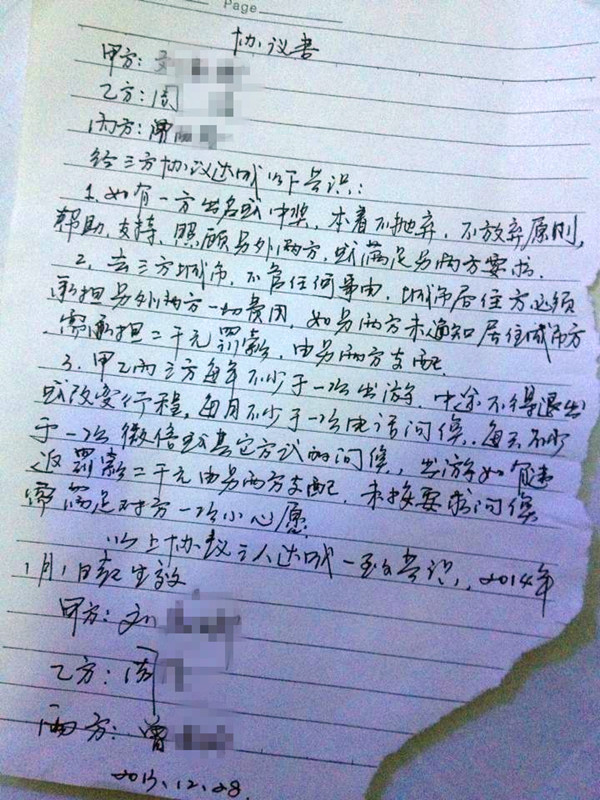 Page
协议书
甲方：刘
乙方：周
丙方：曾
经三方协议达成以下共识：
1. 如有一方出名或中奖，本着不抛弃，不放弃原则，
帮助，支持，照顾另外两方，或满足另两方要求.
2. 去三方城市，不管任何事由，城市居住方必须
承担另外两方一切费用，如另两方未通知居住城市方
需承担二千元罚款，由另两方支配.
3. 甲乙丙三方每年不少于一次出游，中途不得退出
或改变行程，每月不少于一次电话问候，每天不少
于一次微信或其它方式的问候，出游如有违
返罚款二千元由另两方支配，未按要求问候
需满足对方一次小心愿.
以上协议三人达成一致共识，2014年
1月1日起生效
甲方：刘
乙方：周
丙方：曾
2013.12.28.